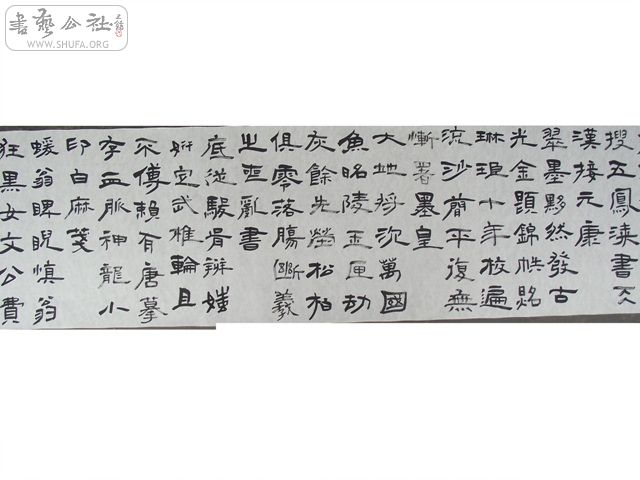 書藝公社
WWW.SHUFA.ORG
搜五鳳漆書
漢接元康
翠墨黟然發古
光金題錦帙照
琳琅十年校遍
流沙簡平復無
慚署墨皇
大地將沉萬國
魚昭陵玉匣劫
灰餘先塋松柏
俱零落腸斷羲
之喪亂書
底從駿骨辨媸
妍定武惟輪且
不傳賴有唐摹
字血脈神龍小
印白麻箋
蝯翁睥睨慎翁
狂黑女文公費